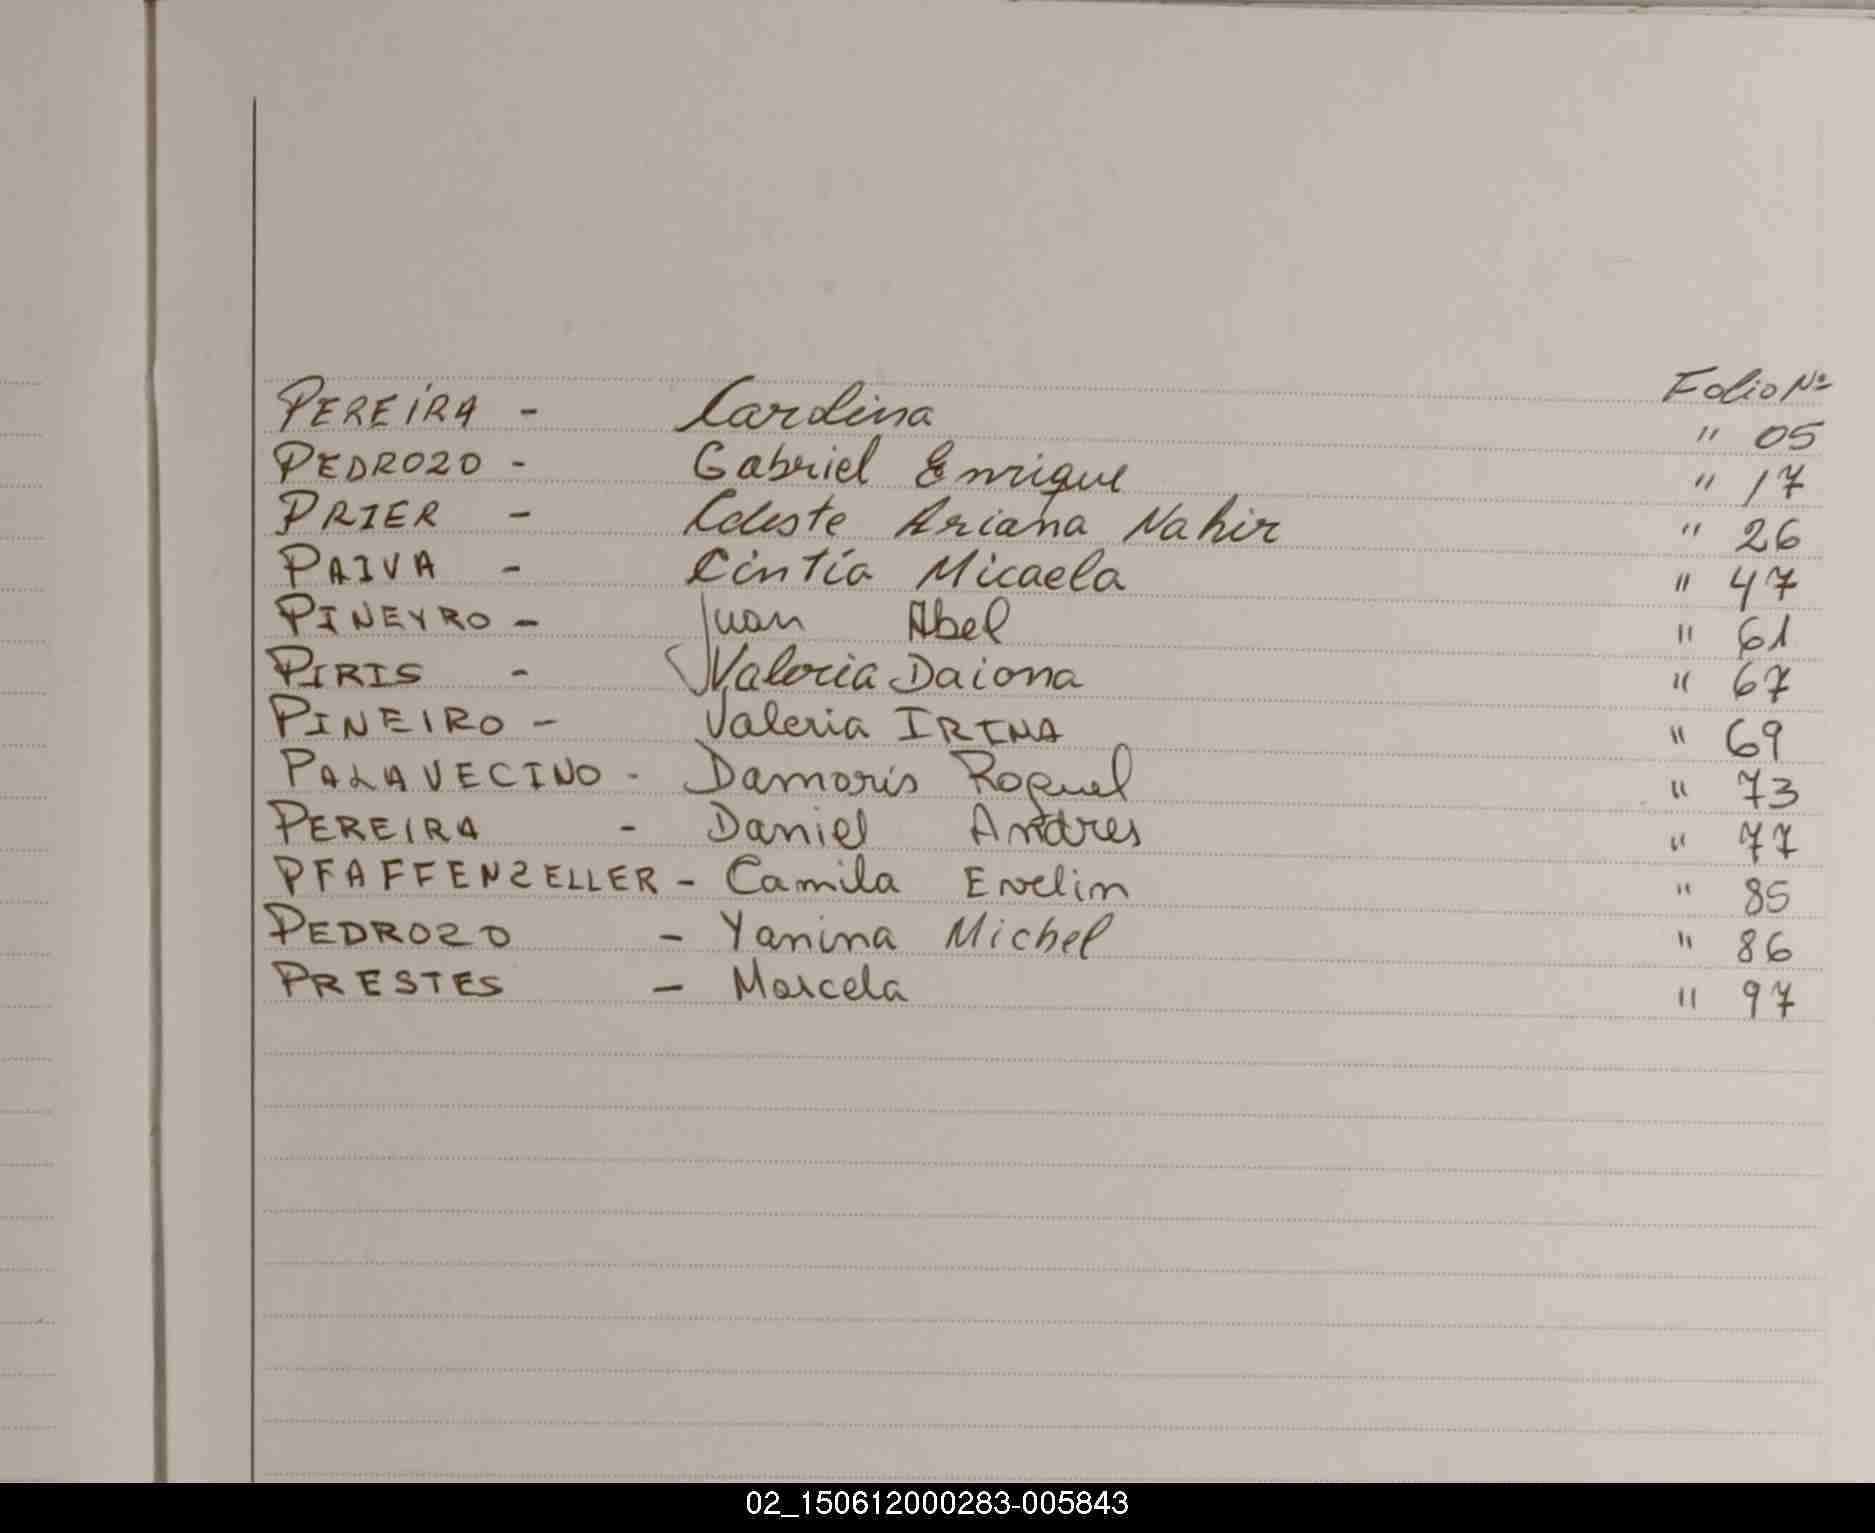 Folio Nº
PEREIRA - Carolina " 05
PEDROZO - Gabriel Enrique " 17
PRIER - Celeste Ariana Nahir " 26
PAIVA - Cintia Micaela " 47
PINEYRO - Juan Abel " 61
PIRIS - Valeria Daiana " 67
PINEIRO - Valeria IRINA " 69
PALAVECINO - Damaris Raquel " 73
PEREIRA - Daniel Andres " 77
PFAFFENZELLER - Camila Evelin " 85
PEDROZO - Yanina Michel " 86
PRESTES - Marcela " 97
02_150612000283-005843